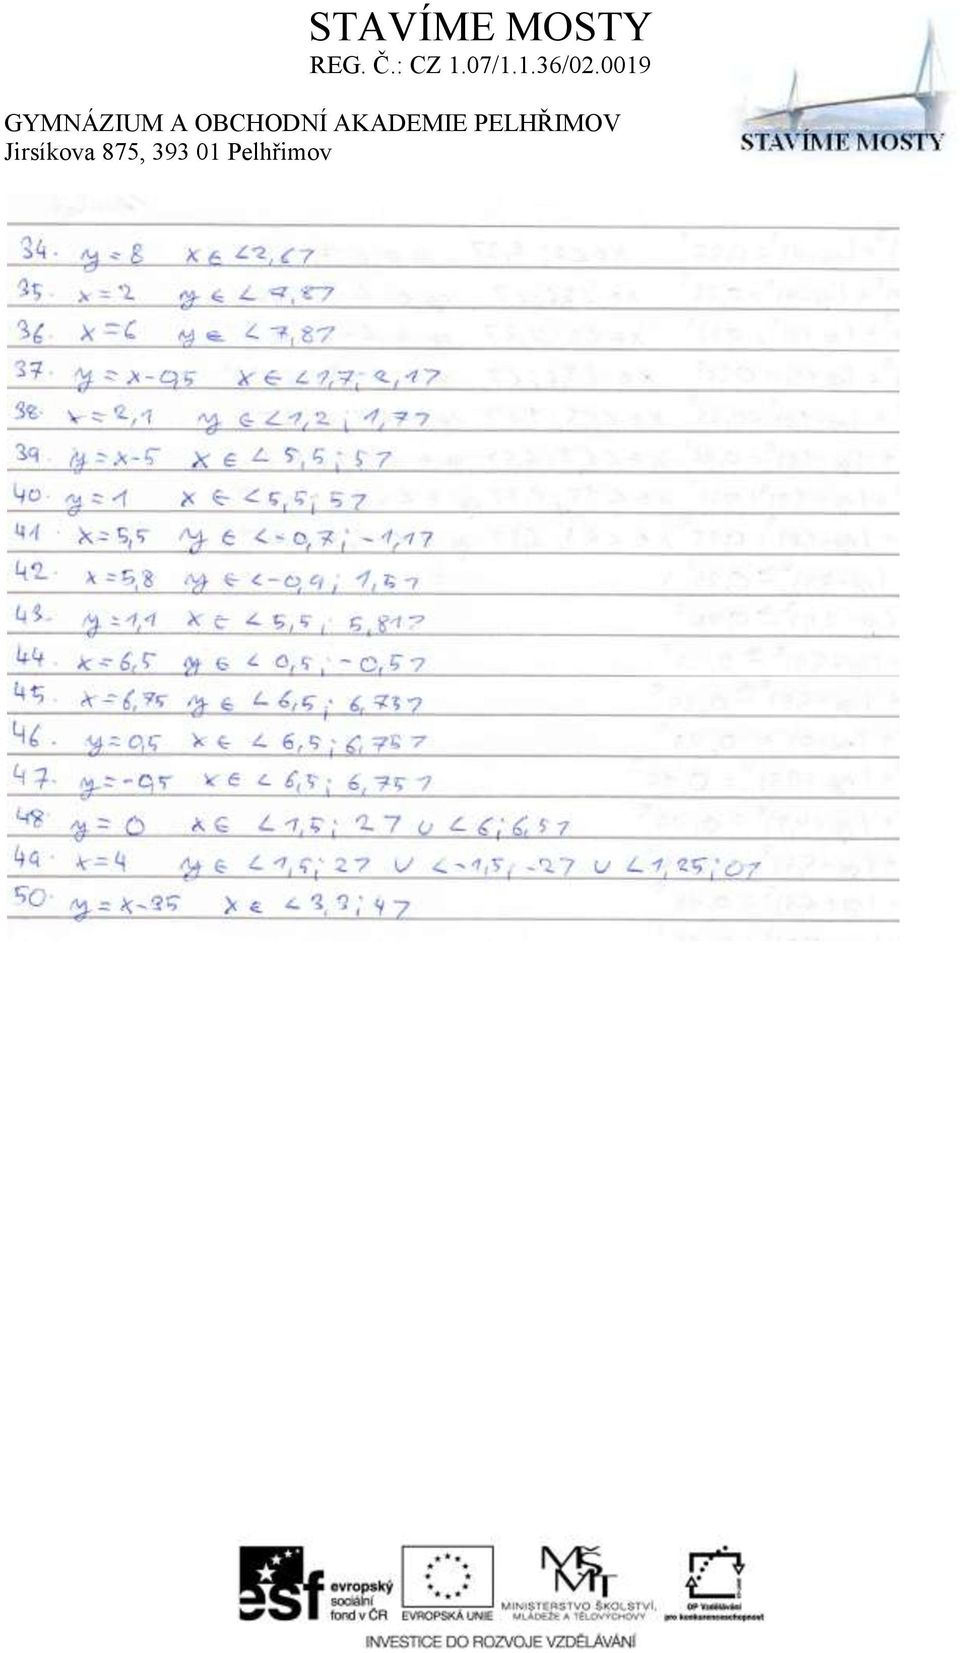 STAVÍME MOSTY
REG. Č.: CZ 1.07/1.1.36/02.0019
GYMNÁZIUM A OBCHODNÍ AKADEMIE PELHŘIMOV
Jirsíkova 875, 393 01 Pelhřimov
STAVÍME MOSTY
34. y=8 x∈<2,6>
35. x=2 y∈<7,8>
36. x=6 y∈<7,8>
37. y=x-0,5 x∈<1,7;2,1>
38. x=2,1 y∈<1,2;1,7>
39. y=x-5 x∈<5,5;5>
40. y=1 x∈<5,5;5>
41. x=5,5 y∈<-0,7;-1,1>
42. x=5,8 y∈<-0,9;1,5>
43. y=1,1 x∈<5,5;5,81>
44. x=6,5 y∈<0,5;-0,5>
45. x=6,75 y∈<6,5;6,73>
46. y=0,5 x∈<6,5;6,75>
47. y=-0,5 x∈<6,5;6,75>
48. y=0 x∈<1,5;2>∪<6;6,5>
49. x=4 y∈<1,5;2>∪<-1,5;-2>∪<1,25;0>
50. y=x-35 x∈<3,3;4>
esf evropský sociální fond v ČR
EVROPSKÁ UNIE
MINISTERSTVO ŠKOLSTVÍ, MLÁDEŽE A TĚLOVÝCHOVY
OP Vzdělávání pro konkurenceschopnost
INVESTICE DO ROZVOJE VZDĚLÁVÁNÍ